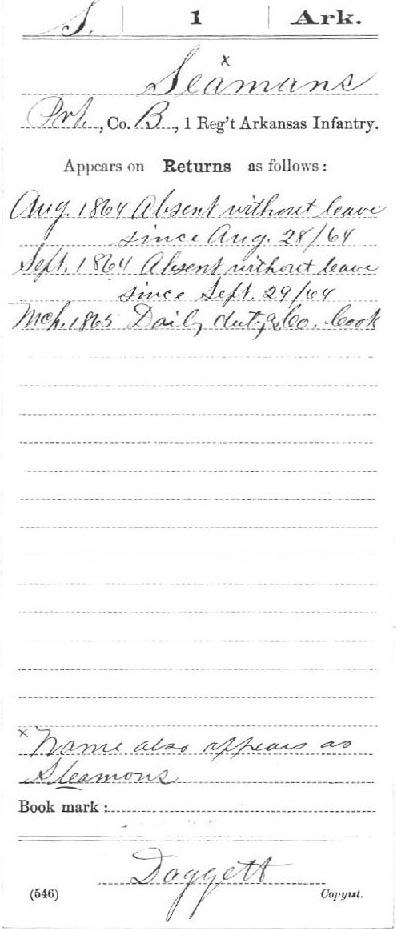 S. | 1 | Ark.
x
Seamans
Pvt, Co. B, 1 Reg't Arkansas Infantry.
Appears on Returns as follows:
Aug. 1864 Absent without leave
since Aug. 28/64
Sept. 1864 Absent without leave
since Sept. 29/64
Mch. 1865 Daily duty Co. Cook
x Name also appears as
Sleamons
Book mark:
Daggett
(546) Copyist.